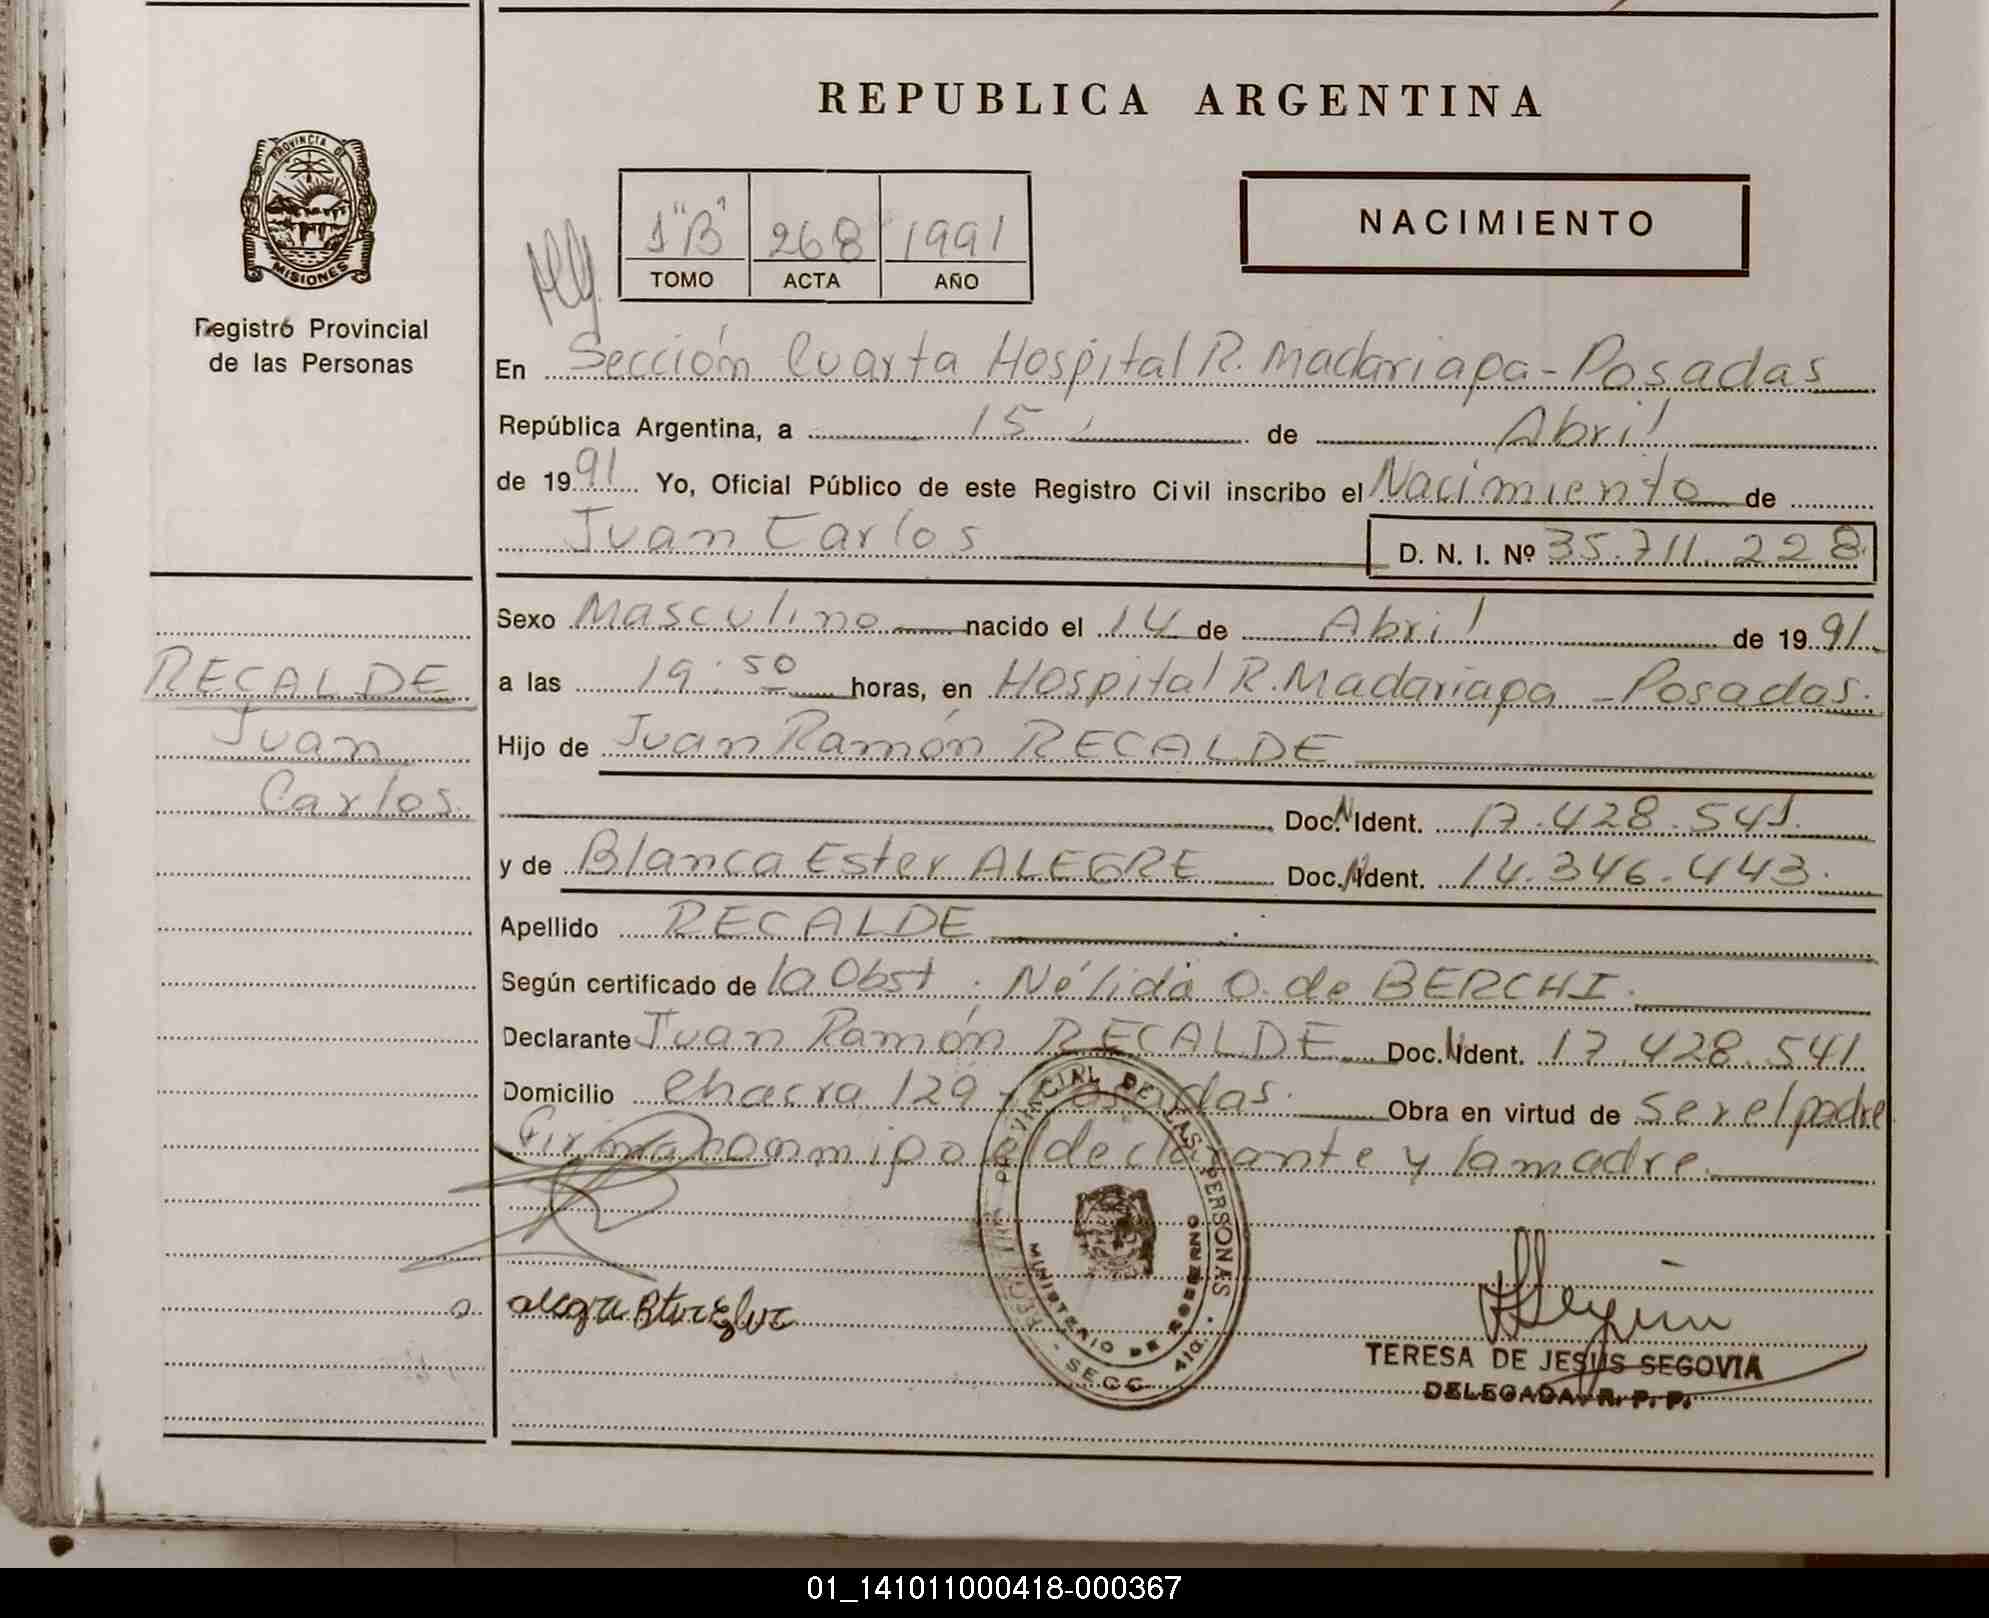 REPUBLICA ARGENTINA
PROVINCIA DE
MISIONES
Registro Provincial
de las Personas
1 "B" 268 1991
TOMO ACTA AÑO
NACIMIENTO
En Sección Cuarta Hospital R. Madariaga - Posadas
República Argentina, a 15 de Abril
de 1991 Yo, Oficial Público de este Registro Civil inscribo el Nacimiento de
Juan Carlos D. N. I. Nº 35.711.228
Sexo Masculino nacido el 14 de Abril de 1991
a las 19:50 horas, en Hospital R. Madariaga - Posadas.
Hijo de Juan Ramón RECALDE
Doc. N Ident. 17.428.541
y de Blanca Ester ALEGRE Doc. N Ident. 14.346.443.
Apellido RECALDE
Según certificado de la Obst. Nélida O. de BERCHI.
Declarante Juan Ramón RECALDE Doc. N Ident. 17.428.541
Domicilio Chacra 129 - Posadas. Obra en virtud de ser el padre
Firman conmigo el declarante y la madre.
RECALDE
Juan
Carlos.
REG. PROVINCIAL DE LAS PERSONAS
MINISTERIO DE GOBIERNO
SECC. 4ta.
TERESA DE JESUS SEGOVIA
DELEGADA R. P. P.
01_141011000418-000367